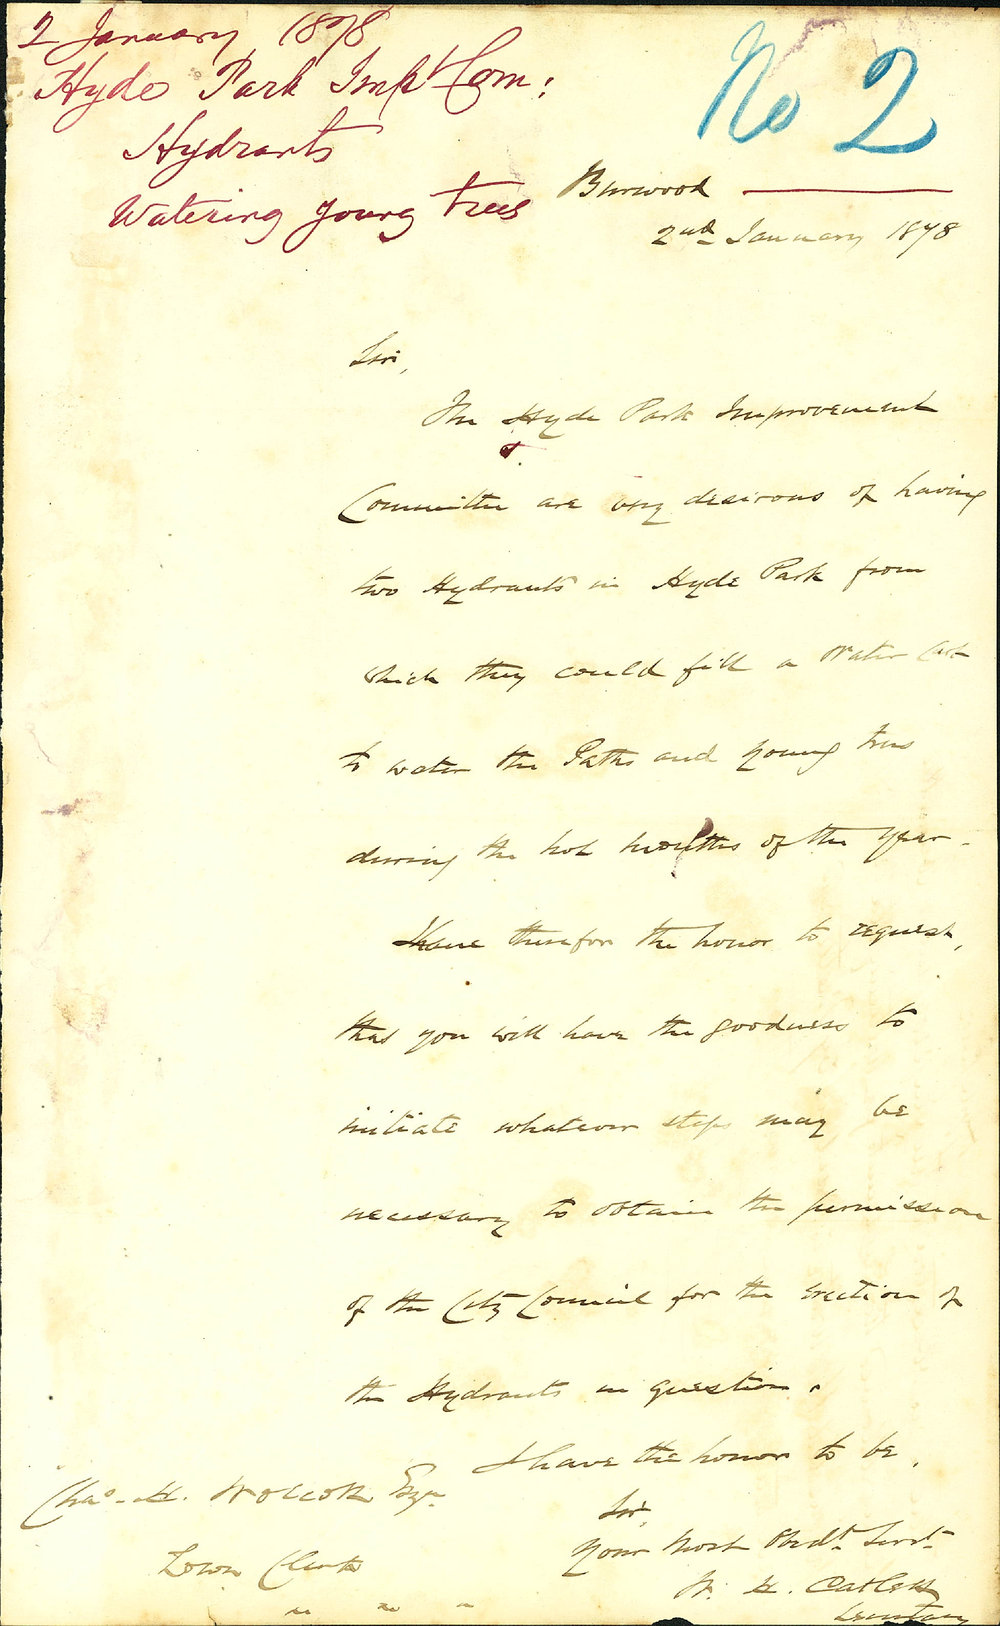 2 January 1878
Hyde Park Impt Com:
Hydrants
Watering young trees
No 2
Burwood
2nd January 1878
Sir,
The Hyde Park Improvement
Committee are very desirous of having
two Hydrants in Hyde Park from
which they could fill a Water Cart
to water the Paths and young trees
during the hot months of the year.
I have therefor the honor to request,
that you will have the goodness to
initiate whatever steps may be
necessary to obtain the permission
of the City Council for the erection of
the Hydrants in question.
I have the honor to be,
Sir,
Your Most Obedt. Servt.
W. H. Catlett
Secretary
Chas. H. Woolcott Esqr.
Town Clerk
" " "